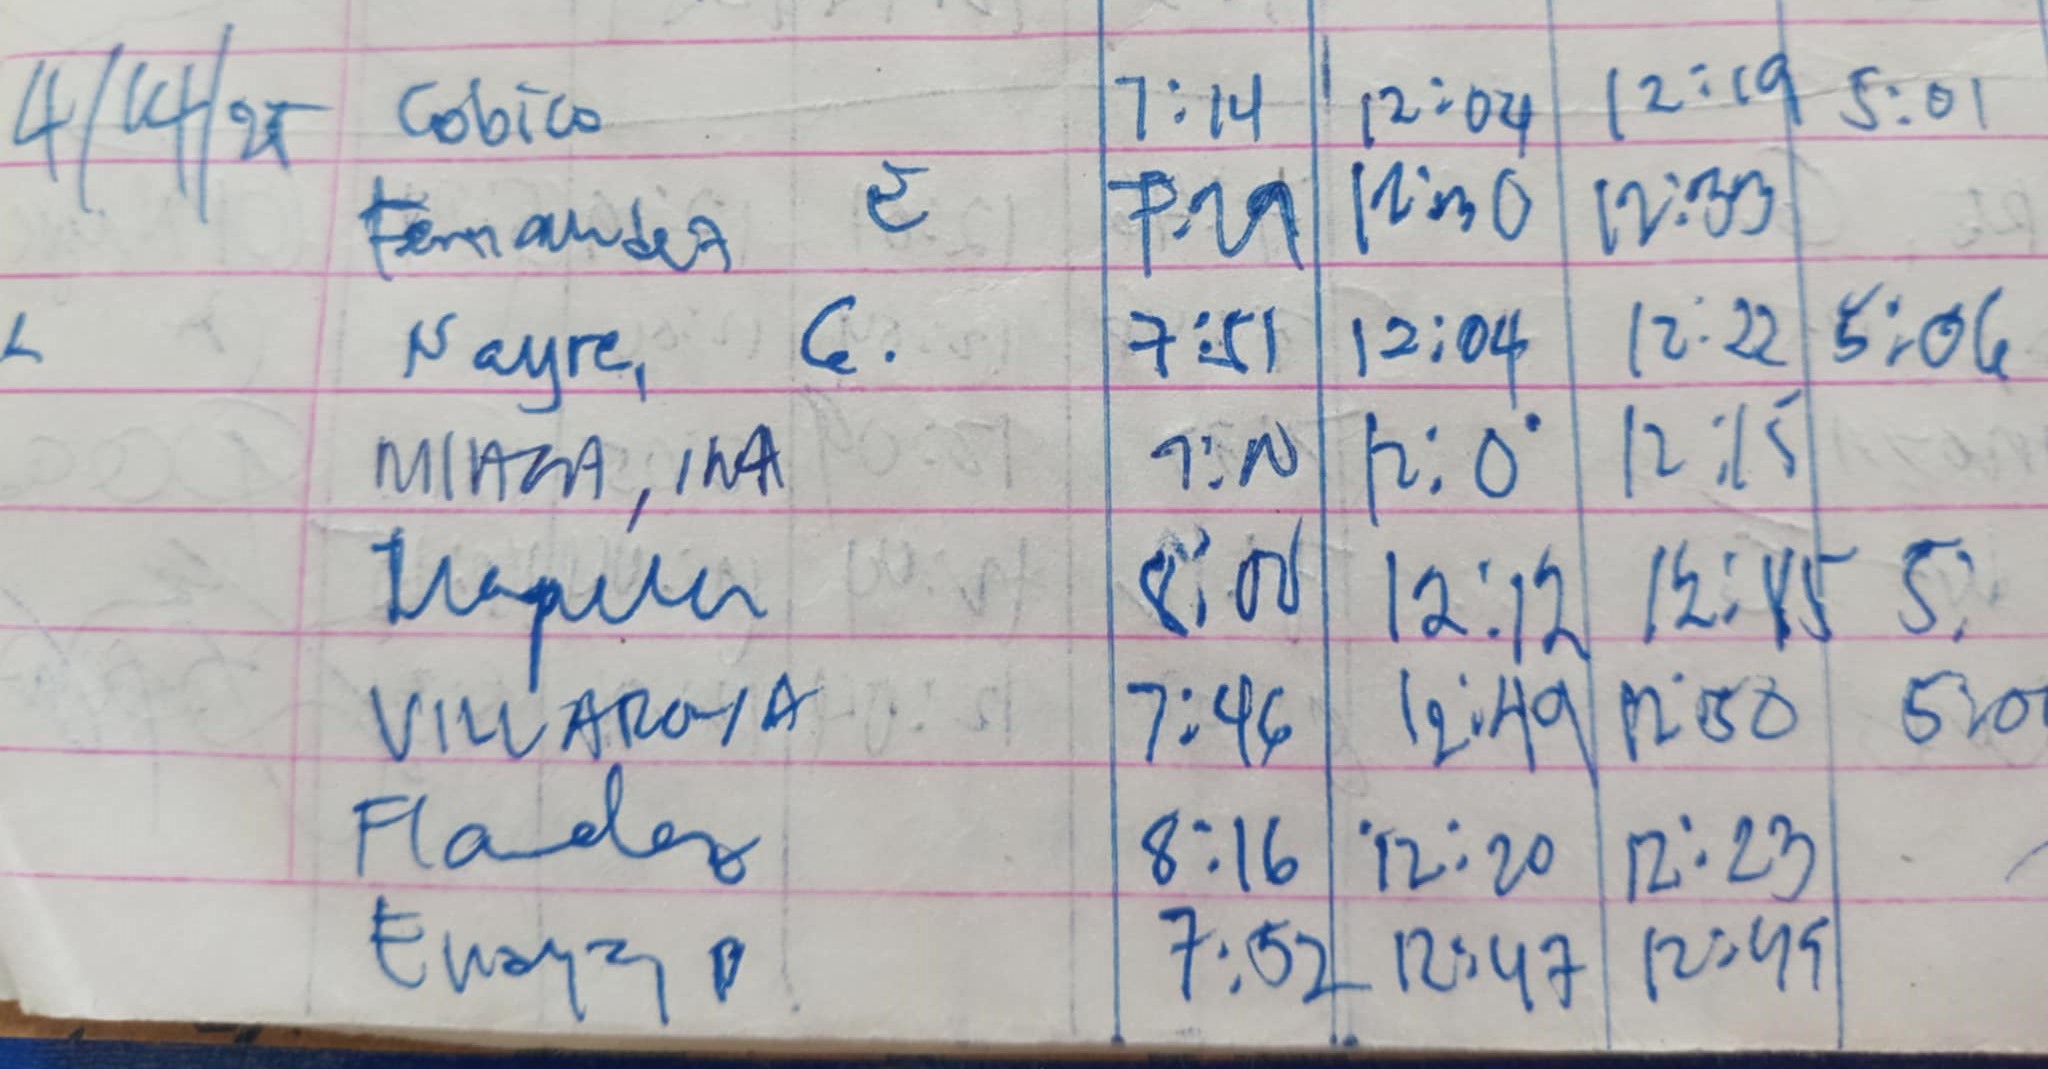 4/14/25 Cobico 7:14 12:04 12:19 5:01
Fernandez E 7:29 12:30 12:33
Nayre, C. 7:51 12:04 12:22 5:06
12:0 12:15
8:00 12:12 12:45 5:
VILLAROYA 7:46 12:49 12:50 5:0
Flandez 8:16 12:20 12:23
7:52 12:47 12:49